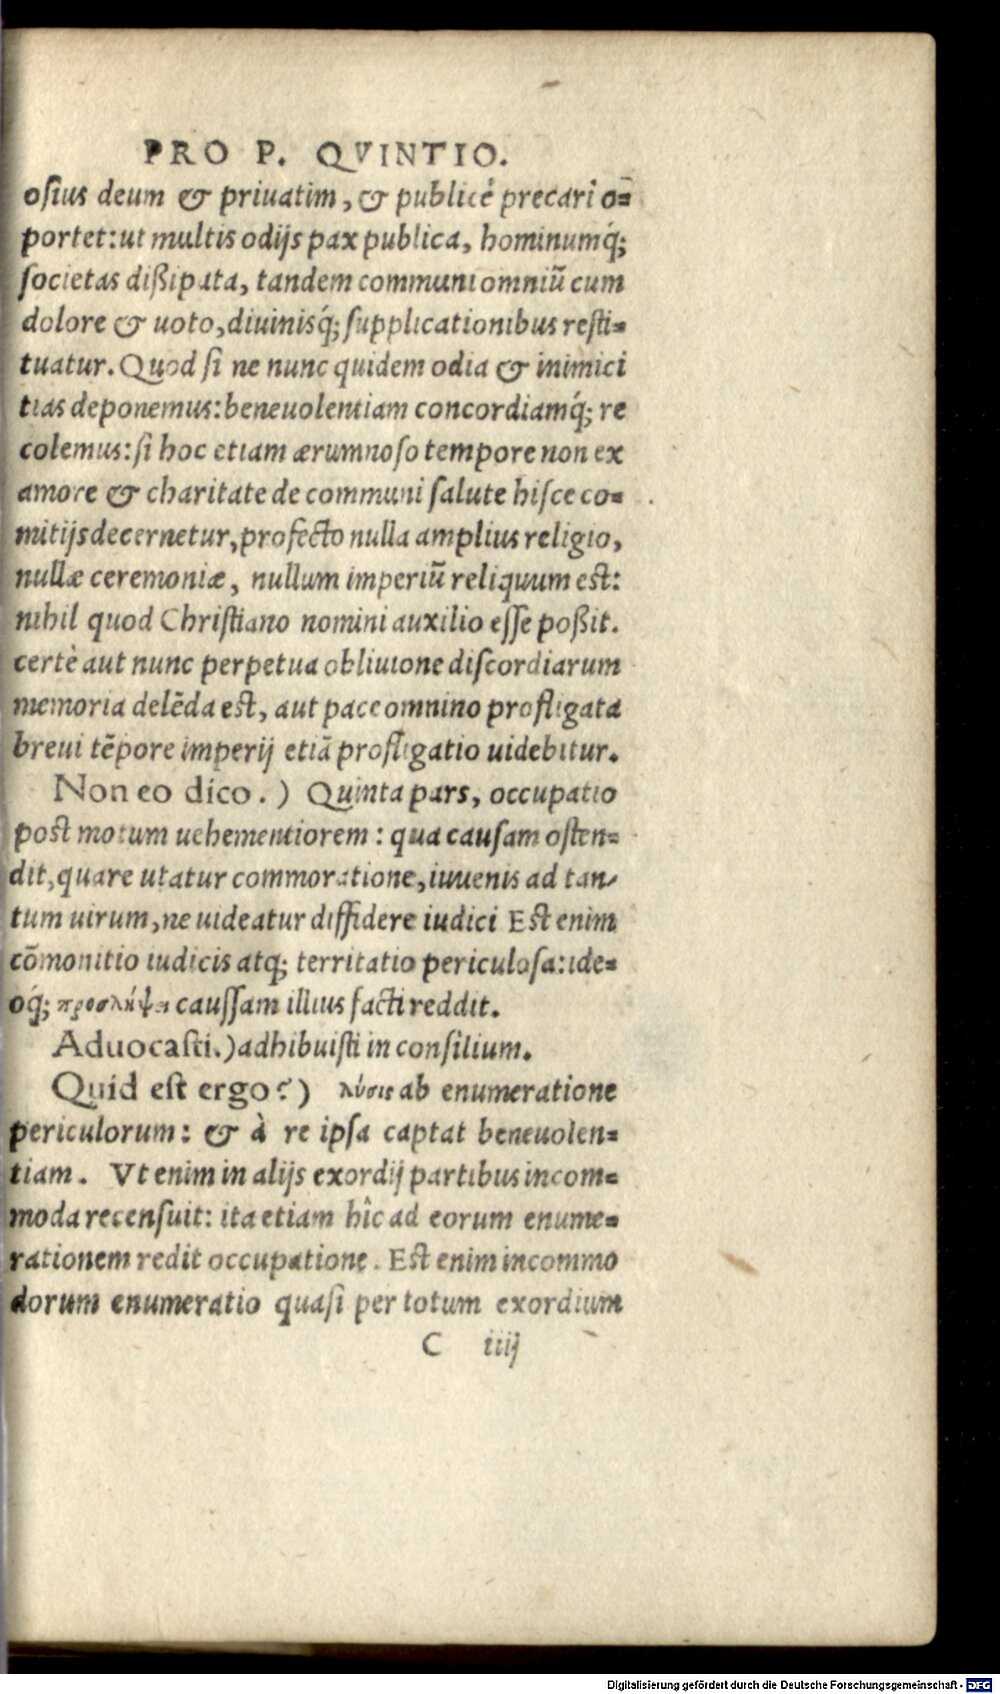 PRO P. QVINTIO.
osius deum & priuatim, & publicè precari o=
portet: ut multis odijs pax publica, hominumq́;
societas dißipata, tandem communi omniū cum
dolore & uoto, diuinisq́; supplicationibus resti=
tuatur. Quod si ne nunc quidem odia & inimici
tias deponemus: beneuolentiam concordiamq́; re
colemus: si hoc etiam ærumnoso tempore non ex
amore & charitate de communi salute hisce co=
mitijs decernetur, profecto nulla amplius religio,
nullæ ceremoniæ, nullum imperiū reliquum est:
nihil quod Christiano nomini auxilio esse poßit.
certè aut nunc perpetua obliuione discordiarum
memoria delēda est, aut pace omnino profligata
breui tēpore imperij etiā profligatio uidebitur.
Non eo dico.) Quinta pars, occupatio
post motum uehementiorem: qua causam osten=
dit, quare utatur commoratione, iuuenis ad tan=
tum uirum, ne uideatur diffidere iudici Est enim
cōmonitio iudicis atq; territatio periculosa: ide=
oq́; προσλήψει caussam illius facti reddit.
Aduocasti.) adhibuisti in consilium.
Quid est ergo?) λύσις ab enumeratione
periculorum: & à re ipsa captat beneuolen=
tiam. Vt enim in alijs exordij partibus incom=
moda recensuit: ita etiam hîc ad eorum enume=
rationem redit occupatione. Est enim incommo
dorum enumeratio quasi per totum exordium
C iiij
Digitalisierung gefördert durch die Deutsche Forschungsgemeinschaft - DFG